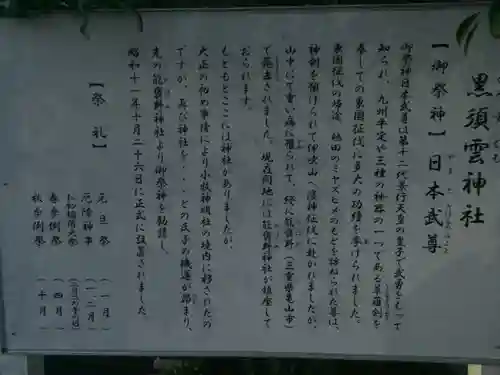 黒須雲神社
【御祭神】日本武尊
やまとたけるのみこと
御祭神日本武尊は第十二代景行天皇の皇子で武勇をもって
知られ、九州平定や三種の神器の一つである草薙剣を
奉しての東国征伐に多大の功績を挙げられました。
東国征伐の帰途、熱田のミヤズヒメのもとを訪ねられた尊は、
神剣を預けられて伊吹山へ蛮神征伐に赴かれましたが、
山中にて重い病に罹られて、終に能褒野（三重県亀山市）
で薨去されました。現在同地には能褒野神社が鎮座して
おられます。
もともとここには神社がありましたが、
大正の初め事情により小牧神明社の境内に移されたの
ですが、再び神社を・・・との氏子の機運が昂まり、
先の能褒野神社より御祭神を勧請し、
昭和十一年十月二十六日に正式に設営されました。
【祭礼】
元旦祭（一月）
厄除神事（一二月）
春季例祭（四月）
秋季例祭（十月）